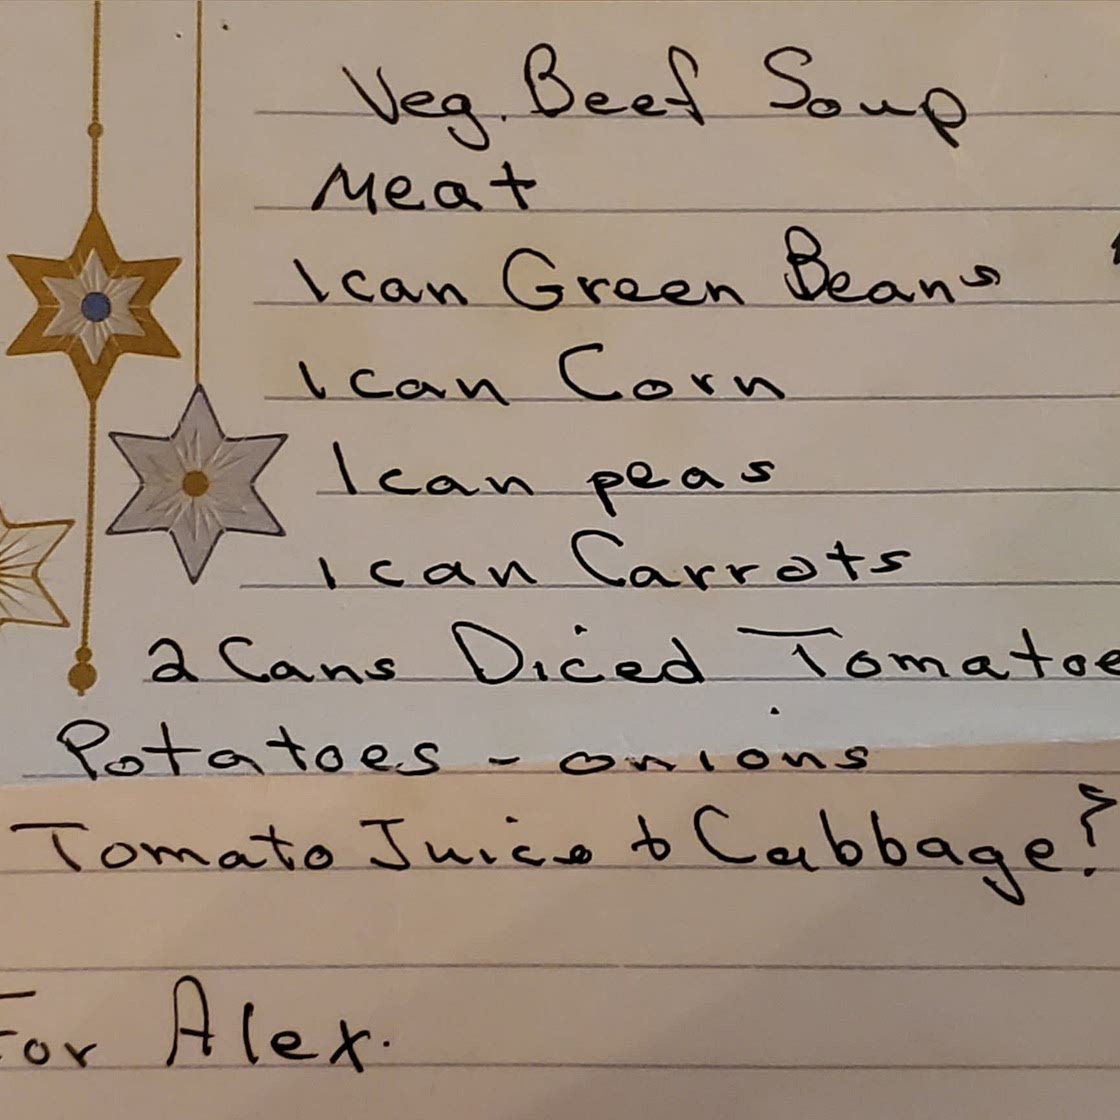 Veg. Beef Soup
Meat
1 can Green Beans
1 can Corn
1 can peas
1 can Carrots
2 Cans Diced Tomatoe
Potatoes - onions
Tomato Juice & Cabbage?
For Alex.